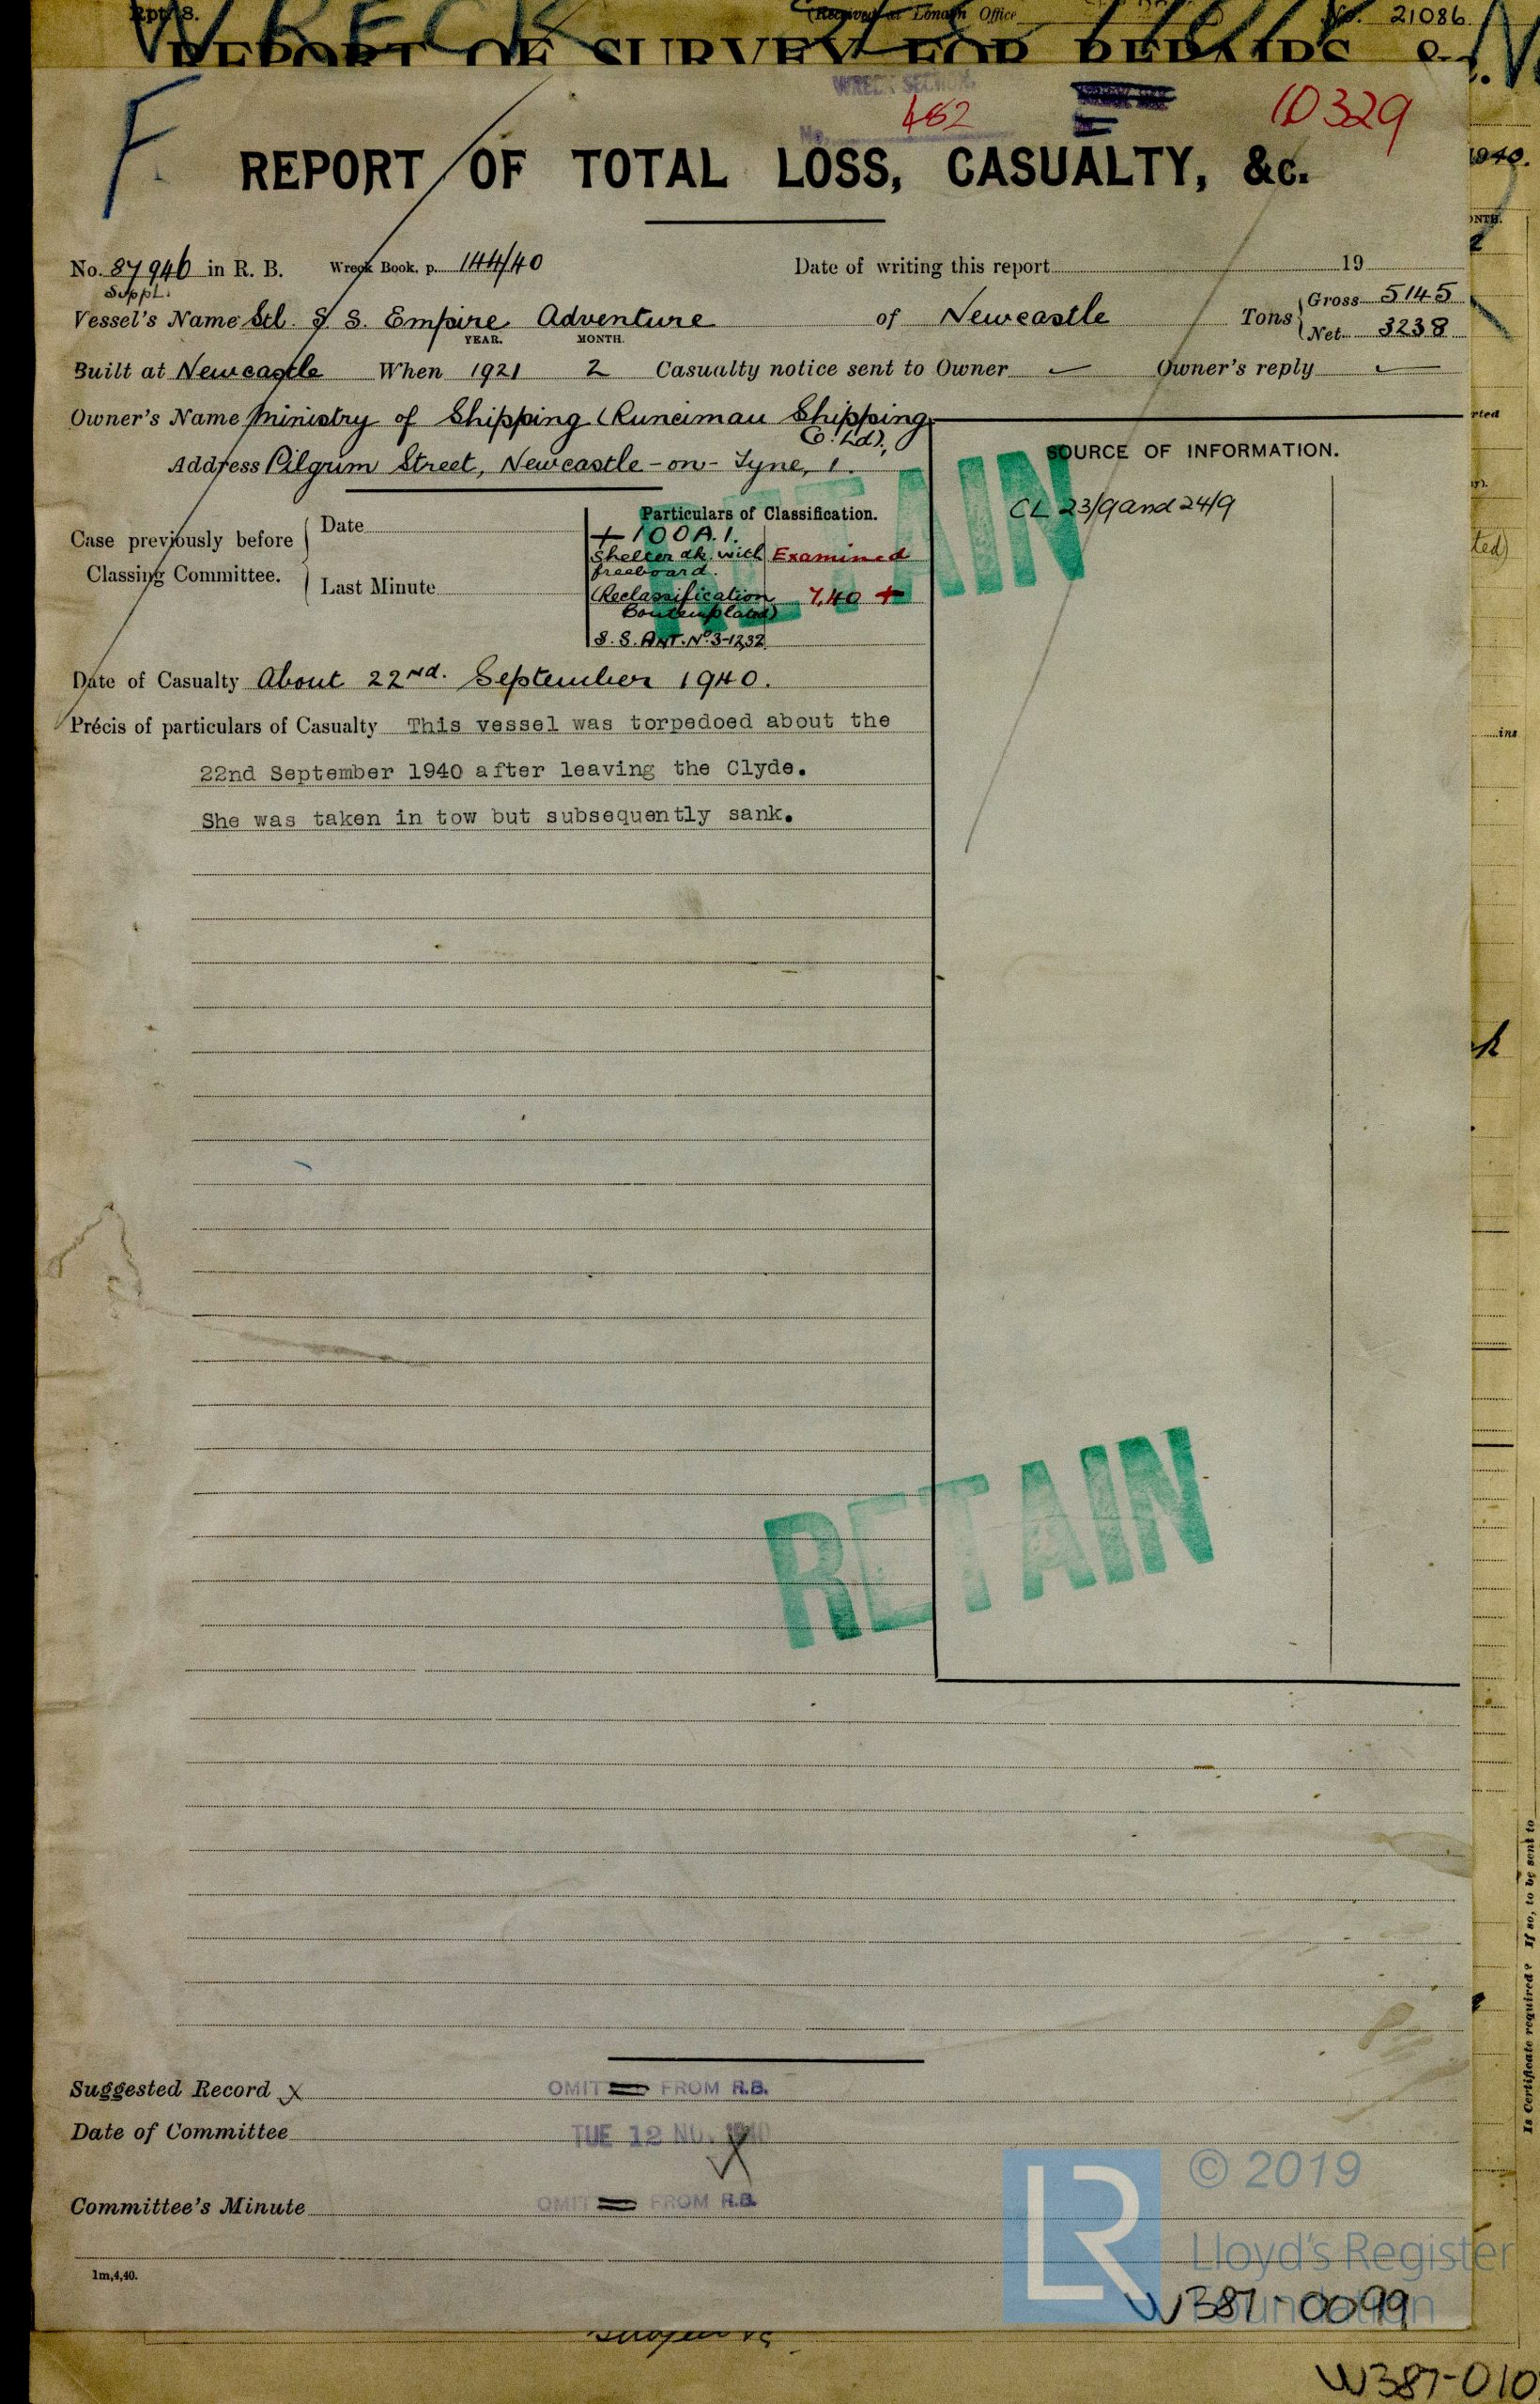 Rpt. 8.
(Received at London Office
No. 21086
WRECK
REPORT OF SURVEY FOR REPAIRS &c.
F
WRECK SECTION.
No. 462
10329
REPORT OF TOTAL LOSS, CASUALTY, &c.
No. 87946 in R. B. Wreck Book, p. 144/40 Date of writing this report 19
Suppl.
Vessel's Name Stl. S S. Empire Adventure of Newcastle Tons Gross 5145
Net 3238
YEAR. MONTH.
Built at Newcastle When 1921 2 Casualty notice sent to Owner — Owner's reply —
Owner's Name Ministry of Shipping (Runciman Shipping
Co. Ltd),
Address Pilgrim Street, Newcastle-on-Tyne, 1.
SOURCE OF INFORMATION.
CL 23/9 and 24/9
RETAIN
Case previously before Classing Committee.
Date
Last Minute
Particulars of Classification.
+100A.1.
Shelter dk. with Examined
freeboard.
(Reclassification 7,40 +
Contemplated)
S.S. ANT. No. 3-12,32
Date of Casualty About 22nd. September 1940.
Précis of particulars of Casualty This vessel was torpedoed about the
22nd September 1940 after leaving the Clyde.
She was taken in tow but subsequently sank.
RETAIN
Suggested Record X OMIT FROM R.B.
Date of Committee TUE 12 NOV 1940
Committee's Minute OMIT FROM R.B.
1m,4,40.
© 2019
Lloyd's Register
Foundation
W387-0099
W387-010
Is Certificate required? If so, to be sent to